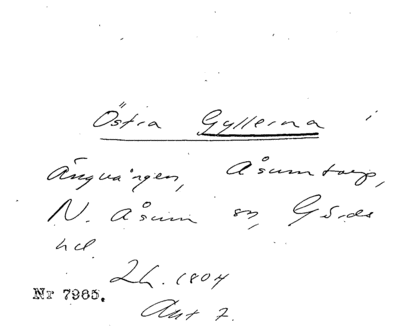 Östra Gyllerna i
Ängvången, Åsumtorp,
N. Åsum sn, Gärds
hd.
Lh. 1804
Nr 7965.
Akt 7.